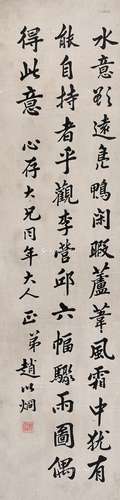 水意欲遠鳧鴨閑暇蘆葦風霜中猶有
能自持者乎觀李營邱六幅驟雨圖偶
得此意 心存大兄同年大人正 弟趙以炯